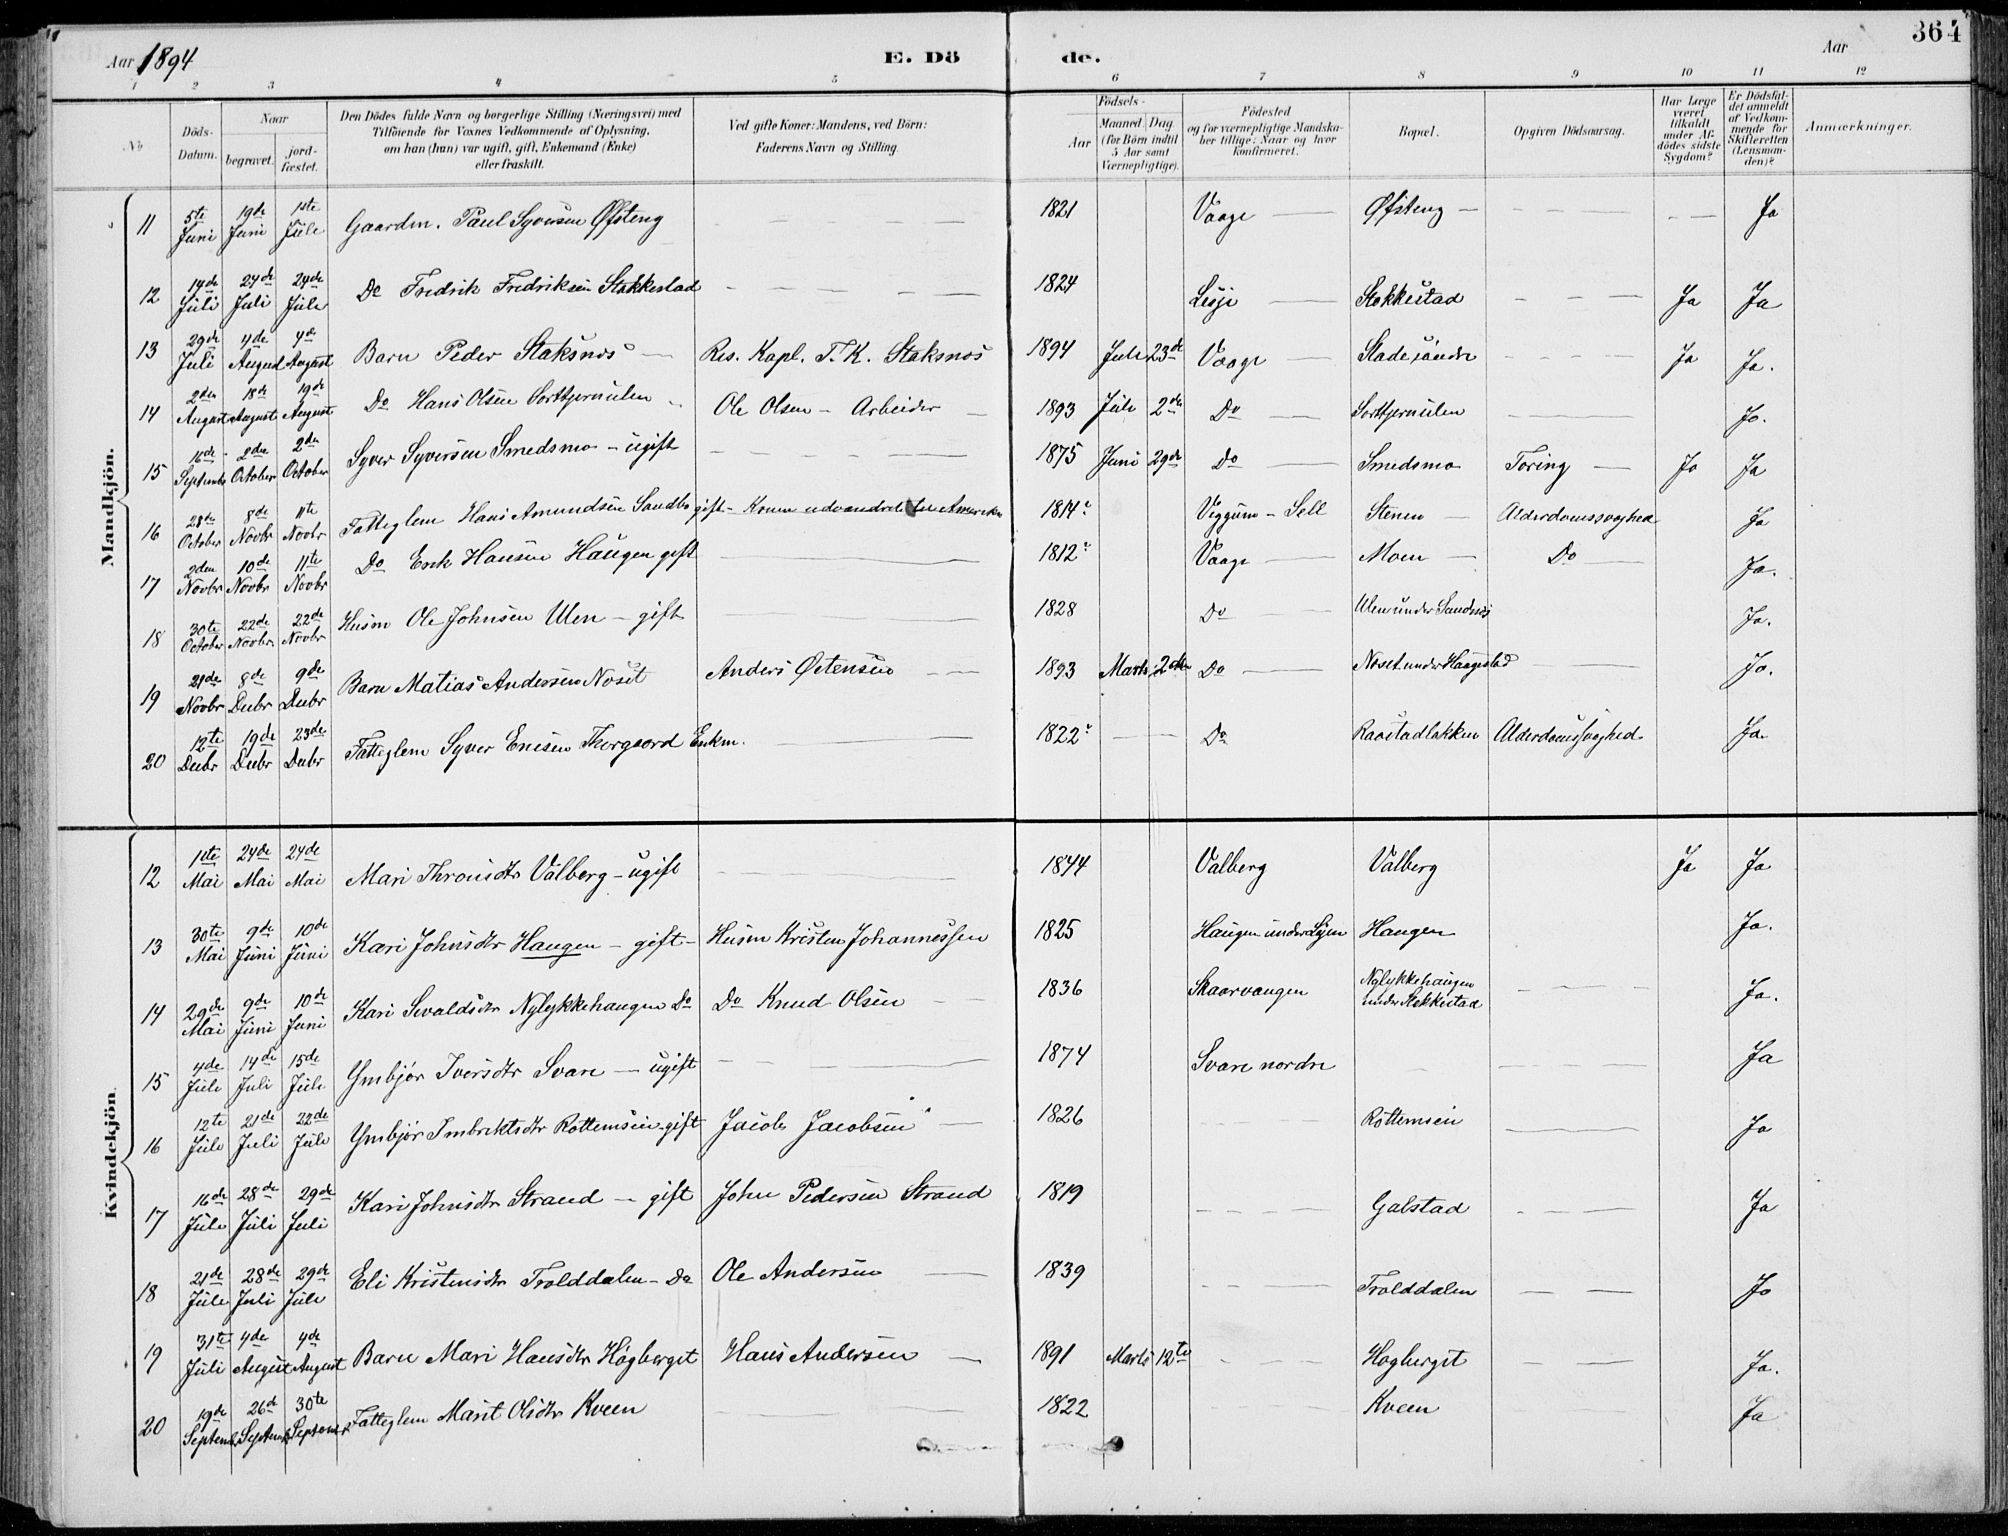 364
Aar 1894 E. Dö de. Aar
1 2 3 4 5 6 7 8 9 10 11 12
No Döds-Datum. Naar begravet. jord-fæstet. Den Dödes fulde Navn og borgerlige Stilling (Næringsvei) med Tilföiende for Voxnes Vedkommende af Oplysning, om han (hun) var ugift, gift, Enkemand (Enke) eller fraskilt. Ved gifte Koner: Mandens, ved Börn: Faderens Navn og Stilling. Födsels- Aar Maaned. Dag (for Börn indtil 5 Aar samt Værnepligtige). Födested og for værnepligtige Mandska-ber tillige: Naar og hvor konfirmeret. Bopæl. Opgiven Dödsaarsag. Har Læge været tilkaldt under Af-dödes sidste Sygdom? Er Dödsfal-det anmeldt af Vedkom-mende for Skifteretten (Lensman-den)? Anmærkninger.
Mandkjön.
11 5te Juni 19de Juni 1ste Juli Gaardm. Paul Syversen Øfsteng 1821 Vaage Øfsteng Ja
12 14de Juli 24de Juli 24de Juli Do Fredrik Fredriksen Stokkestad 1824 Lesje Stokkestad Ja Ja
13 29de Juli 4de August 4de August Barn Peder Staksnes Res. Kapl. T. K. Staksnes 1894 Juli 23de Vaage Ja Ja.
14 2den August 18de August 19de August Do Hans Olsen Sorttjernulen Ole Olsen - Arbeider 1893 Juli 2den Do Sorttjernulen Ja.
15 16de Septembr 2den October 2den October Syver Syversen Smedsmo - ugift 1875 Juni 29de Do Smedsmo Tæring Ja Ja
16 28de October 8de Novbr 11te Novbr Fatteglem Hans Amundsen Sandbo gift - Konen udvandret til Amerika 1814 Veggum - Sell Stenen Alderdomssvaghed Ja
17 2den Novbr 10de Novbr 11te Novbr Do Erik Hansen Haugen gift 1812 Vaage Moen Do Ja.
18 30te October 22de Novbr 22de Novbr Husm Ole Johnsen Ulen - gift 1828 Do Ulen under Sandnes Ja.
19 21de Novbr 8de Decbr 9de Decbr Barn Matias Andersen Noset Anders Østensen 1893 Marts 2den Do Noset under Haagestad Ja.
20 12te Decbr 19de Decbr 23de Decbr Fatteglem Syver Enersen Thorgaard Enkm. 1822 Do Raastadløkken Alderdomssvaghed Ja.
Kvindekjön.
12 1ste Mai 24de Mai 24de Mai Mari Thronsdtr Valberg - ugift 1844 Valberg Valberg Ja Ja
13 30te Mai 9de Juni 10de Juni Kari Johnsdtr Haugen - gift - Husm Kristen Johannessen 1825 Haugen under Lyen Haugen Ja.
14 29de Mai 9de Juni 10de Juni Kari Sevaldsdtr Nylykkehaugen Do Do Knud Olsen 1836 Skaarvangen Nylykkehaugen under Stokkestad Ja.
15 4de Juli 14de Juli 15de Juli Ymbjør Iversdtr Svare - ugift 1874 Svare nordre Ja
16 12te Juli 21de Juli 22de Juli Ymbjør Imbrektsdtr Rottemsein gift Jacob Jacobsen 1826 Rottemsein Ja
17 16de Juli 28de Juli 29de Juli Kari Johnsdtr Strand - gift John Pedersen Strand 1819 Galstad Ja
18 21de Juli 28de Juli 29de Juli Eli Kristensdtr Trolddalen - Do Ole Andersen 1839 Trolddalen Ja
19 31te Juli 4de August 4de August Barn Mari Hansdtr Høgberget Hans Andersen 1891 Marts 12te Høgberget Ja.
20 19de Septembr 26de Septembr 30te Septembr Fatteglem Marit Olsdtr Kveen 1822 Kveen Ja